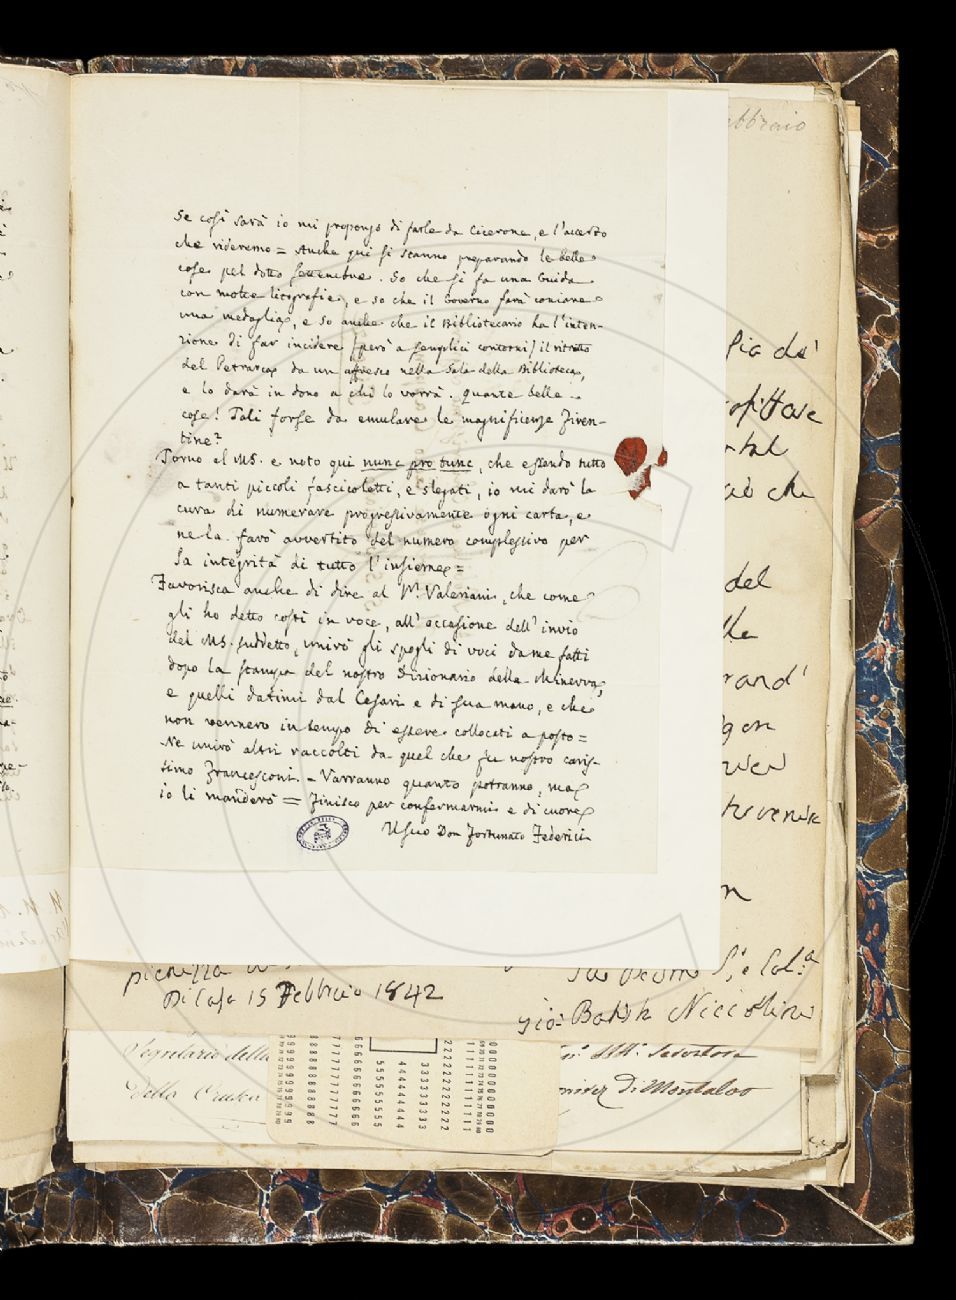 Se così sarà io mi propongo di farle da Cicerone, e l'accerto
che rideremo = Anche qui si stanno preparando le belle
cose pel dotto settembre. So che si fa una Guida
con molte litografie, e so che il Governo farà coniare
una medaglia, e so anche che il Bibliotecario ha l'inten-
zione di far incidere (però a semplici contorni) il ritratto
del Petrarca da un affresco nella Sala della Biblioteca,
e lo darà in dono a chi lo vorrà. Quante belle
cose! Tali forse da emulare le magnificenze Firen-
tine?
Torno al MS. e noto qui nunc pro tunc, che essendo tutto
a tanti piccoli fascicoletti, e slegati, io mi darò la
cura di numerare progressivamente ogni carta, e
ne la farò avvertito del numero complessivo per
la integrità di tutto l'insieme =
Favorisca anche di dire al Valeriani, che come
gli ho detto costì in voce, all'occasione dell'invio
del MS. suddetto, unirò gli spogli di voci da me fatti
dopo la stampa del nostro Dizionario della Minerva,
e quelli datimi dal Cesari e di sua mano, e che
non vennero in tempo di essere collocati a posto =
Ne unirò altri raccolti da quel che fu nostro caris-
simo Francesconi. - Varranno quanto potranno, ma
io li manderò = Finisco per confermarmi e di cuore
Il Suo Don Fortunato Federici
bbraio
pia de'
che
del
rand'
Di Casa 15 Febbraio 1842
Gio: Batista Niccolini
Segretario della
Della Crusca